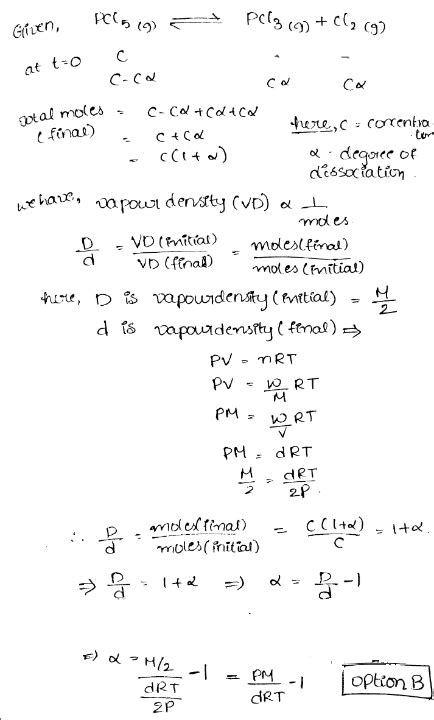 Given, PCl5 (g) ⇌ PCl3 (g) + Cl2 (g)
at t=0 C - -
C-Cα Cα Cα
total moles = C-Cα+Cα+Cα
(final) = C+Cα
= C(1+α)
here, C = concentration
α - degree of dissociation.
we have, vapour density (VD) α 1/moles
D/d = VD (initial)/VD (final) = moles(final)/moles (initial)
here, D is vapourdensity (initial) = M/2
d is vapourdensity (final) ⇒
PV = nRT
PV = w/M RT
PM = w/V RT
PM = dRT
M/2 = dRT/2P.
∴ D/d = moles(final)/moles(initial) = C(1+α)/C = 1+α.
⇒ D/d = 1+α ⇒ α = D/d -1
⇒ α = M/2 / dRT/2P -1 = PM/dRT -1 Option B